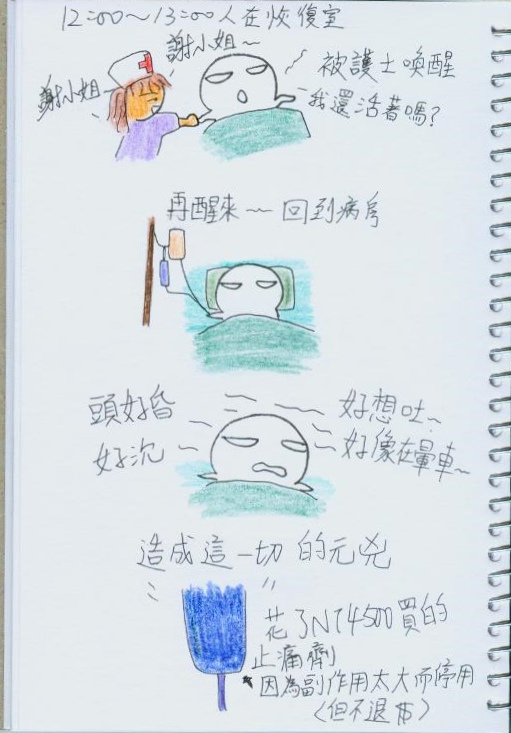 12:00～13:00人在恢復室
謝小姐～
謝小姐
被護士喚醒
我還活著嗎?
再醒來～回到病房
頭好昏
好沉
好想吐~
好像在暈車~
造成這一切的元兇
花了NT4500買的
止痛劑
因為副作用太大而停用
(但不退費)